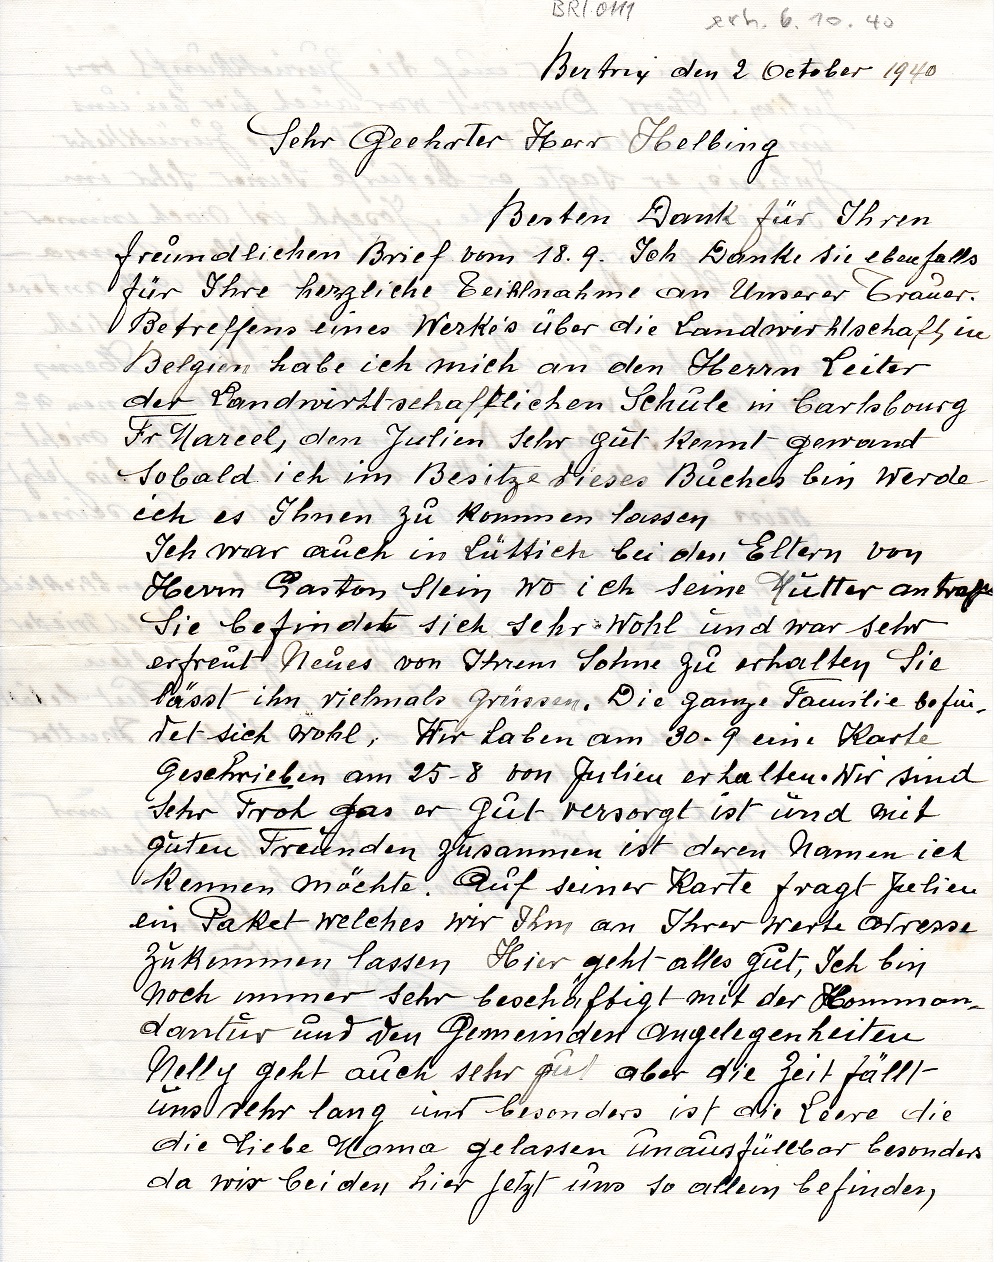 BRI.0111
erh. 6.10.40
Bertrix den 2 October 1940
Sehr Geehrter Herr Helbing
Besten Dank für Ihren
freundlichen Brief vom 18.9. Ich Danke sie ebenfalls
für Ihre herzliche Teihlnahme an Unserer Trauer.
Betreffens eines Werkes über die Landwirhtschaft in
Belgien habe ich mich an den Herrn Leiter
der Landwirhtschafftlichen Schule in Carlsbourg
Fr Marcel, den Julien sehr gut kennt gewand
Sobald ich im Besitze dieses Buches bin werde
ich es Ihnen zu kommen lassen
Ich war auch in Lüttich bei den Eltern von
Herrn Gaston Stein wo ich seine Mutter antraf
Sie befindet sich sehr wohl und war sehr
erfreut Neues von Ihrem Sohne zu erhalten Sie
lässt ihn vielmals grüssen. Die ganze Familie befin-
det sich wohl, Wir haben am 30-9 eine Karte
geschrieben am 25-8 von Julien erhalten. Wir sind
sehr Froh das er gut versorgt ist und mit
guten Freunden zusammen ist deren Namen ich
kennen möchte. Auf seiner Karte fragt Julien
ein Paket welches wir Ihm an Ihrer werte Adresse
zukommen lassen Hier geht alles gut, Ich bin
noch immer sehr beschäftigt mit der Komman-
dantur und den Gemeinden angelegenheiten
Nelly geht auch sehr gut aber die Zeit fällt
uns sehr lang und besonders ist die Leere die
die Liebe Mama gelassen unausfüllbar besonders
da wir beiden hier jetzt uns so allein befinden,